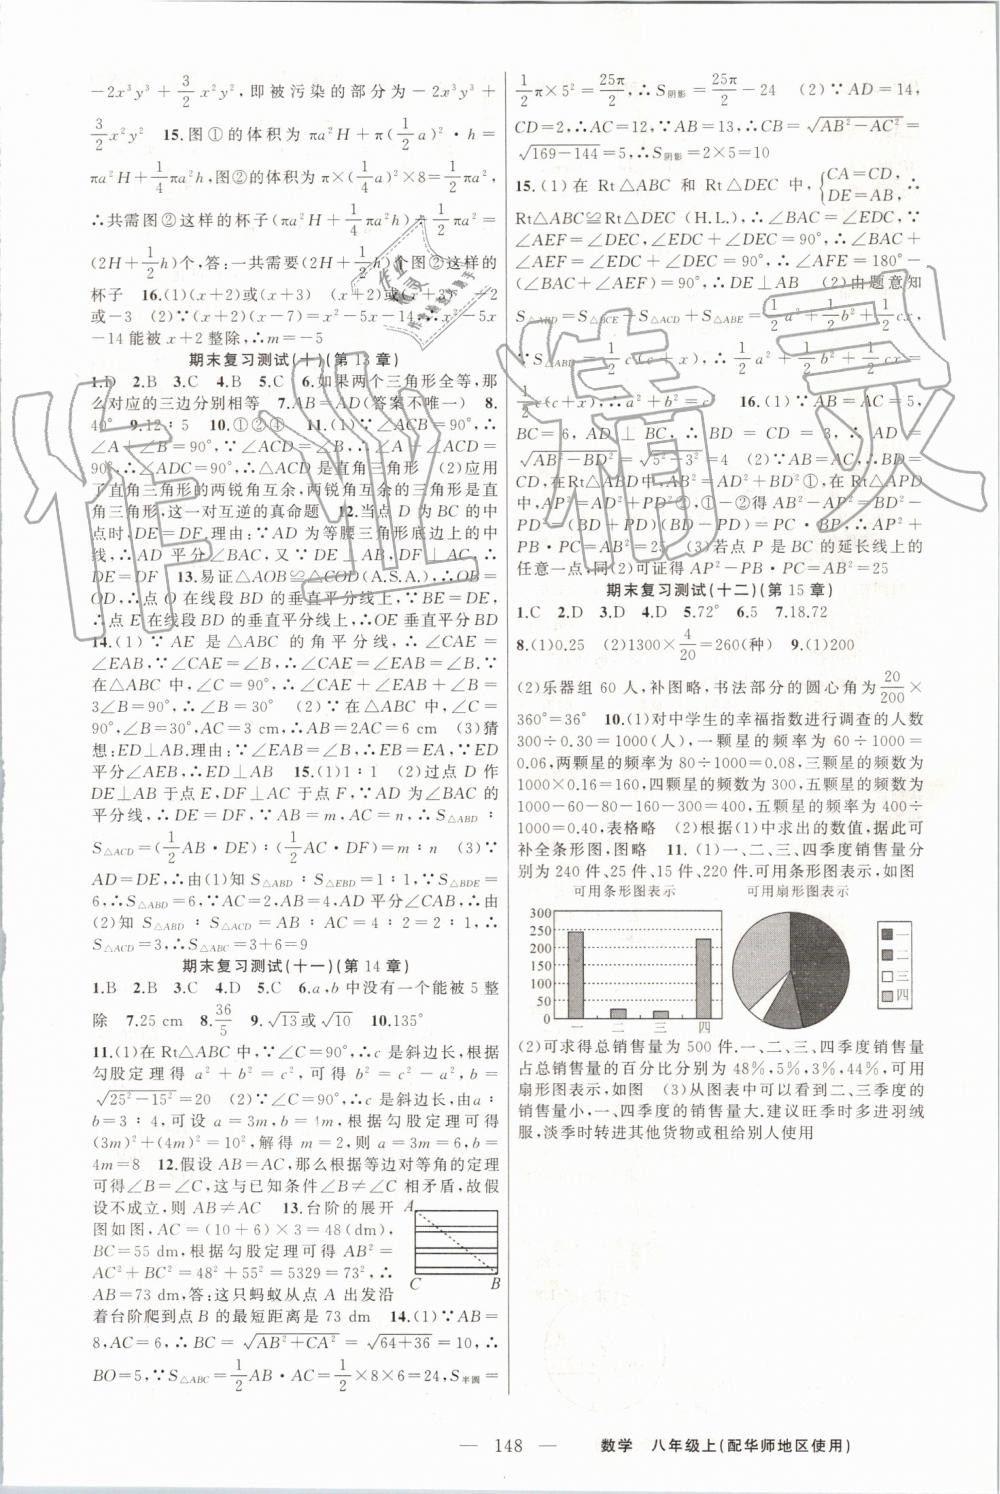 −2x³y³ + 3/2 x²y², 即被污染的部分为−2x³y³ +
3/2 x²y²　15.图①的体积为 πa²H + π(1/2 a)² · h =
πa²H + 1/4 πa²h, 图②的体积为 π×(1/4 a)²×8 = 1/2 πa²,
∴共需图②这样的杯子(πa²H + 1/4 πa²h) ÷ 1/2 πa² =
(2H + 1/2 h)个, 答: 一共需要(2H + 1/2 h)个图②这样的
杯子　16.(1)(x+2)或(x+3)　(x+2)(x+3)　−2
或−3　(2)∵(x+2)(x−7)=x²−5x−14, ∴x²−5x
−14能被x+2整除, ∴m=−5
期末复习测试(十)(第13章)
1.D　2.B　3.C　4.B　5.C　6.如果两个三角形全等,那
么对应的三边分别相等　7.AB=AD(答案不唯一)　8.
40°　9.12∶5　10.①②④　11.(1)∵∠ACB=90°,∴
∠A+∠B=90°,∵∠ACD=∠B,∴∠A+∠ACD=
90°,∴∠ADC=90°,∴△ACD是直角三角形　(2)应用
了直角三角形的两锐角互余,两锐角互余的三角形是直
角三角形,这一对互逆的真命题　12.当点D为BC的中
点时,DE=DF.理由:∵AD为等腰三角形底边上的中
线,∴AD平分∠BAC,又∵DE⊥AB,DF⊥AC,∴
DE=DF　13.易证△AOB≌△COD(A.S.A.),∴OB=
OD,∴点O在线段BD的垂直平分线上,∵BE=DE,
∴点E在线段BD的垂直平分线上,∴OE垂直平分BD
14.(1)∵AE是△ABC的角平分线,∴∠CAE=
∠EAB,∵∠CAE=∠B,∴∠CAE=∠EAB=∠B.∵
在△ABC中,∠C=90°,∴∠CAE+∠EAB+∠B=
3∠B=90°,∴∠B=30°　(2)∵在△ABC中,∠C=
90°,∠B=30°,AC=3 cm,∴AB=2AC=6 cm　(3)猜
想:ED⊥AB.理由:∵∠EAB=∠B,∴EB=EA,∵ED
平分∠AEB,∴ED⊥AB　15.(1)1∶1　(2)过点D作
DE⊥AB于点E,DF⊥AC于点F,∵AD为∠BAC的
平分线,∴DE=DF,∵AB=m,AC=n,∴S△ABD∶
S△ACD=(1/2 AB·DE)∶(1/2 AC·DF)=m∶n　(3)∵
AD=DE,∴由(1)知S△ABD∶S△EBD=1∶1,∵S△BDE=
6,∴S△ABD=6,∵AC=2,AB=4,AD平分∠CAB,∴由
(2)知S△ABD∶S△ACD=AB∶AC=4∶2=2∶1,∴
S△ACD=3,∴S△ABC=3+6=9
期末复习测试(十一)(第14章)
1.B　2.B　3.C　4.D　5.C　6.a,b中没有一个能被5整
除　7.25 cm　8.36/5　9.√13或√10　10.135°
11.(1)在Rt△ABC中,∵∠C=90°,∴c是斜边长,根据
勾股定理得 a²+b²=c²,可得 b=√(c²−a²)=
√(25²−15²)=20　(2)∵∠C=90°,∴c是斜边长,由a∶
b=3∶4,可设 a=3m,b=4m,根据勾股定理得
(3m)²+(4m)²=10²,解得 m=2,则 a=3m=6,b=
4m=8　12.假设AB=AC,那么根据等边对等角的定理
可得∠B=∠C,这与已知条件∠B≠∠C相矛盾,故假
设不成立,则AB≠AC　13.台阶的展开
图如图,AC=(10+6)×3=48(dm),
BC=55 dm,根据勾股定理可得 AB²=
AC²+BC²=48²+55²=5329=73²,∴
AB=73 dm,答:这只蚂蚁从点A出发沿
着台阶爬到点B的最短距离是73 dm　14.(1)∵AB=
8,AC=6,∴BC=√(AB²+CA²)=√(64+36)=10,∴
BO=5,∵S△ABC=1/2 AB·AC=1/2×8×6=24,S半圆=
A
C　B
1/2 π×5²=25π/2,∴S阴影=25π/2−24　(2)∵AD=14,
CD=2,∴AC=12,∵AB=13,∴CB=√(AB²−AC²)=
√(169−144)=5,∴S阴影=2×5=10
15.(1)在Rt△ABC和Rt△DEC中,{CA=CD, DE=AB,∴
Rt△ABC≌Rt△DEC(H.L.),∴∠BAC=∠EDC,∵
∠AEF=∠DEC,∠EDC+∠DEC=90°,∴∠BAC+
∠AEF=90°,∴∠BAC+∠AFE=180°−(∠BAC+
∠AEF)=90°,∴DE⊥AB　(2)由题意知
S△ABD=S△BCE+S△ACD+S△ABE=1/2 a²+1/2 b²+1/2 cx,
∵S△ABD=1/2 c(c+x),∴1/2 a²+1/2 b²+1/2 cx=
1/2 c(c+x),∴a²+b²=c²　16.(1)∵AB=AC=5,
BC=6,AD⊥BC,∴BD=CD=3,∴AD=
√(AB²−BD²)=√(5²−3²)=4　(2)∵AB=AC,∴BD=
CD,在Rt△ABD中,AB²=AD²+BD²①,在Rt△APD
中,AP²=AD²+PD²②,①−②得AB²−AP²=BD²−
PD²=(BD+PD)(BD−PD)=PC·BP,∴AP²+
PB·PC=AB²=25　(3)若点P是BC的延长线上的
任意一点,同(2)可证得AP²−PB·PC=AB²=25
期末复习测试(十二)(第15章)
1.C　2.D　3.D　4.D　5.72°　6.5　7.18,72
8.(1)0.25　(2)1300×4/20=260(种)　9.(1)200
(2)乐器组60人,补图略,书法部分的圆心角为20/200×
360°=36°　10.(1)对中学生的幸福指数进行调查的人数
300÷0.30=1000(人),一颗星的频率为60÷1000=
0.06,两颗星的频率为80÷1000=0.08,三颗星的频数为
1000×0.16=160,四颗星的频数为300,五颗星的频数为
1000−60−80−160−300=400,五颗星的频率为400÷
1000=0.40,表格略　(2)根据(1)中求出的数值,据此可
补全条形图,图略　11.(1)一、二、三、四季度销售量分
别为240件、25件、15件、220件.可用条形图表示,如图
可用条形图表示　可用扇形图表示
300
250
200
150
100
50
0
一　二　三　四
一
二
三
四
(2)可求得总销售量为500件.一、二、三、四季度销售量
占总销售量的百分比分别为48%,5%,3%,44%,可用
扇形图表示,如图　(3)从图表中可以看到二、三季度的
销售量小,一、四季度的销售量大.建议旺季时多进羽绒
服,淡季时转进其他货物或租给别人使用
— 148 —　数学　八年级上(配华师地区使用)
作业精灵